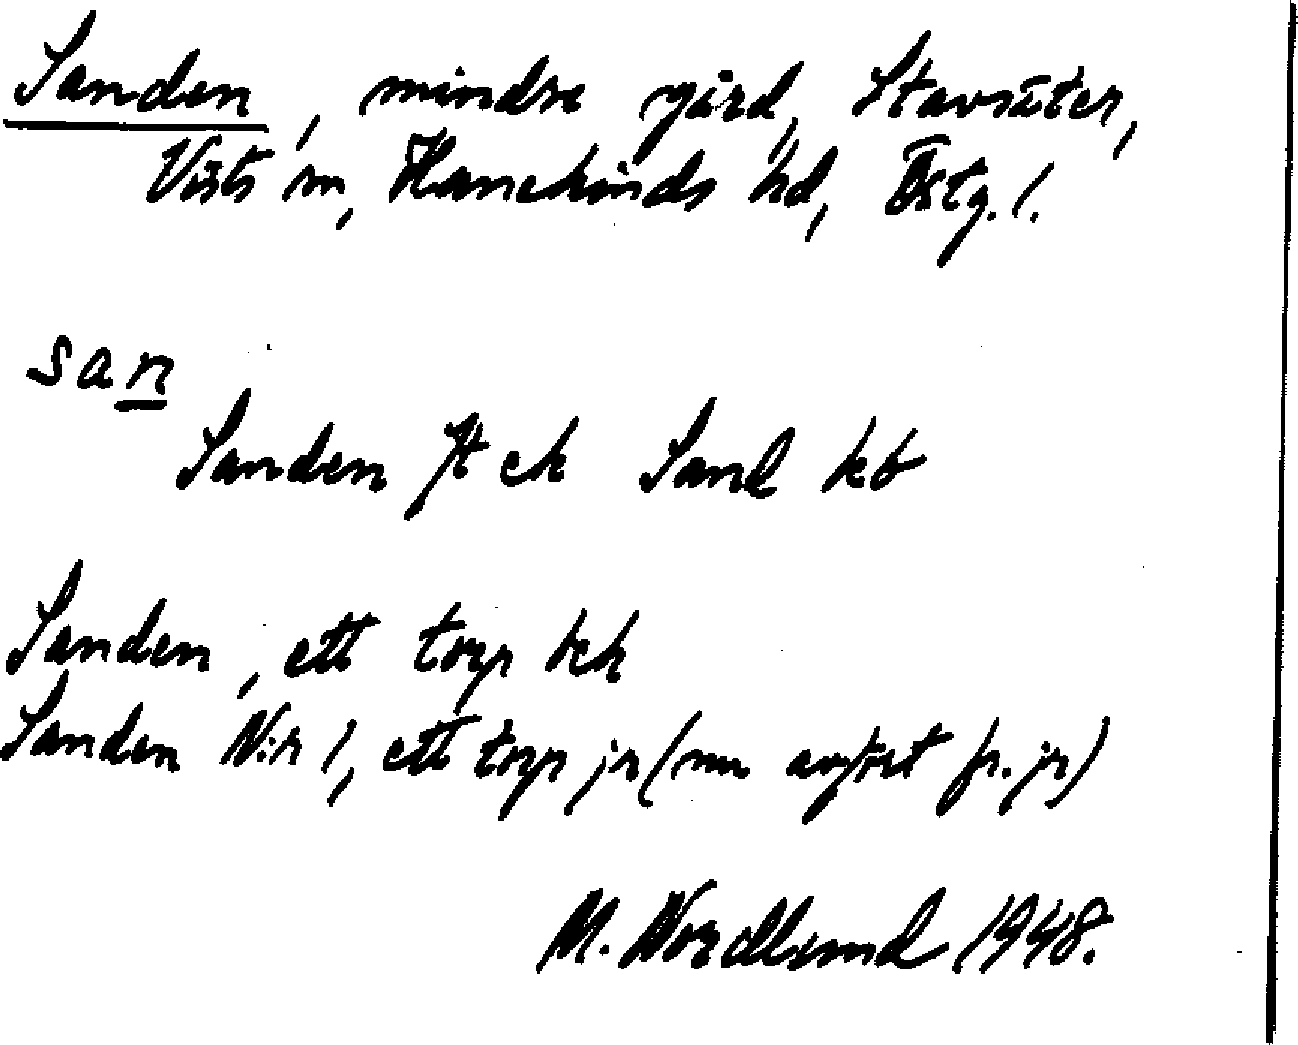 Sanden, mindre gård, Stavsäter,
Vists sn, Hanekinds hd, Östg. l.
san
Sanden Jt ek Sand kb
Sanden, ett torp hch
Sanden N:r 1, ett torp jr (nu avfört fr. jr)
M. Nordlund 1948.